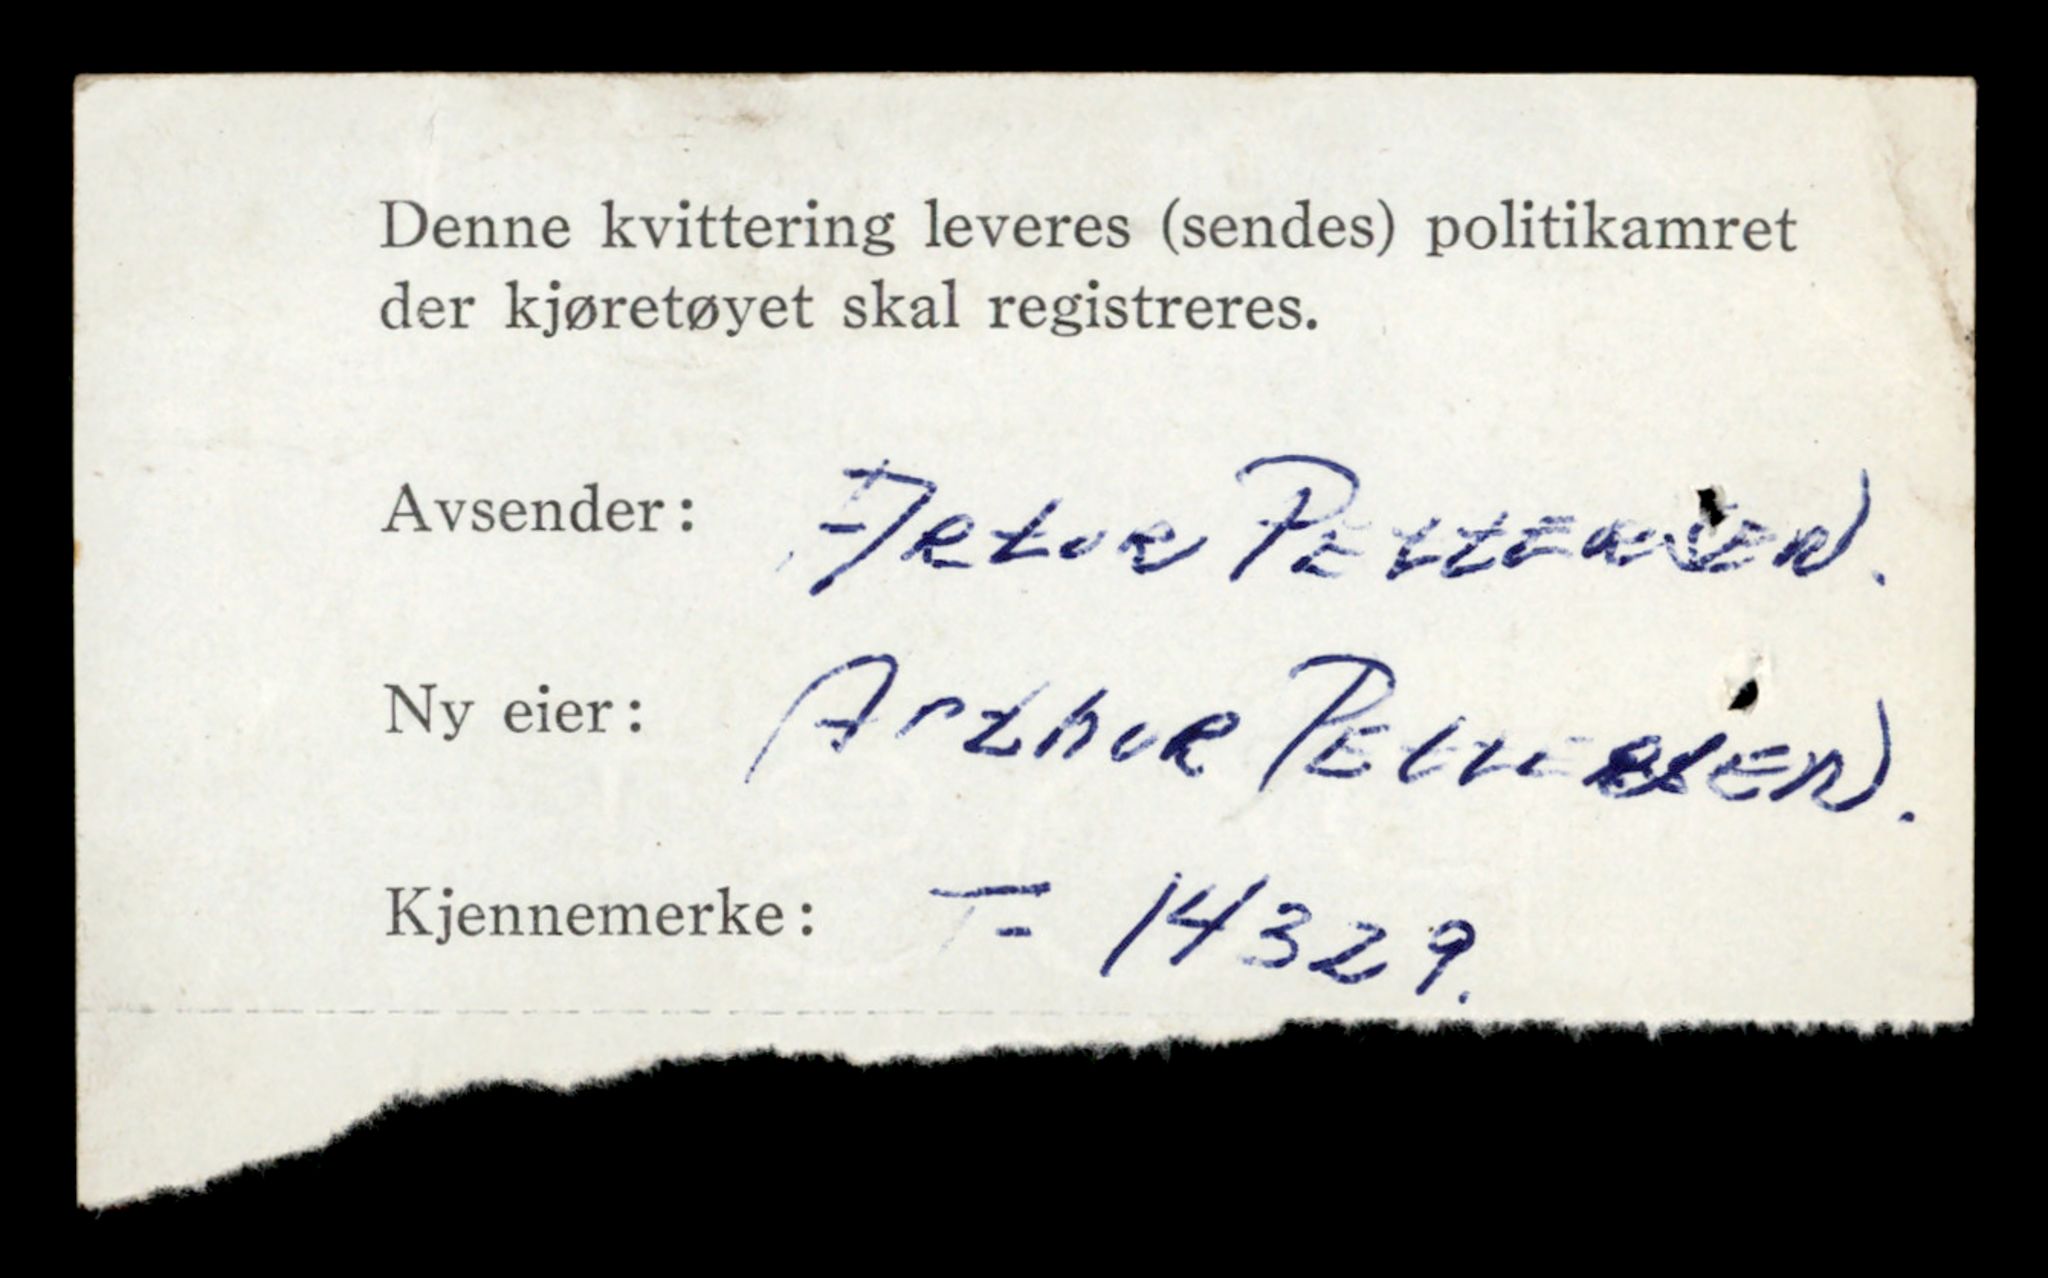 Denne kvittering leveres (sendes) politikamret
der kjøretøyet skal registreres.
Avsender: Artur Pettersen.
Ny eier: Arthur Pettersen.
Kjennemerke: T- 14329.